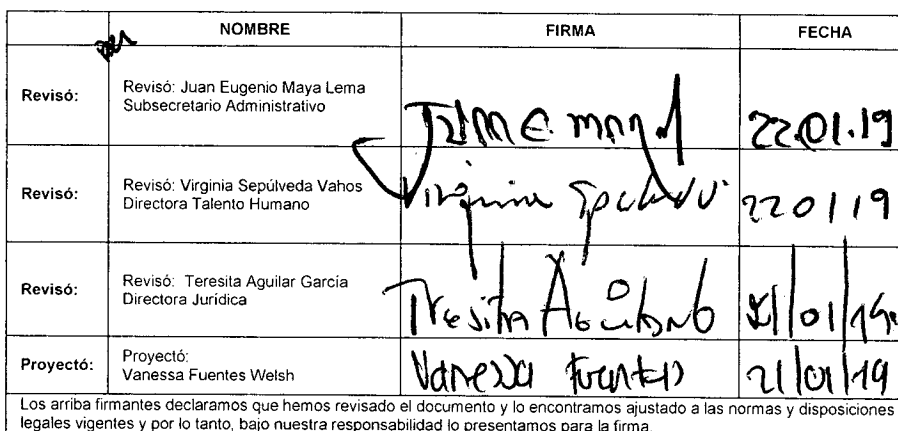 NOMBRE FIRMA FECHA
Revisó: Revisó: Juan Eugenio Maya Lema
Subsecretario Administrativo
Juan E. Maya L 22.01.19
Revisó: Revisó: Virginia Sepúlveda Vahos
Directora Talento Humano
Virginia Sepúlveda V 22 01 19
Revisó: Revisó: Teresita Aguilar García
Directora Jurídica
Teresita Aguilar 01/19
Proyectó: Proyectó:
Vanessa Fuentes Welsh
Vanessa Fuentes 21/01/19
Los arriba firmantes declaramos que hemos revisado el documento y lo encontramos ajustado a las normas y disposiciones
legales vigentes y por lo tanto, bajo nuestra responsabilidad lo presentamos para la firma.